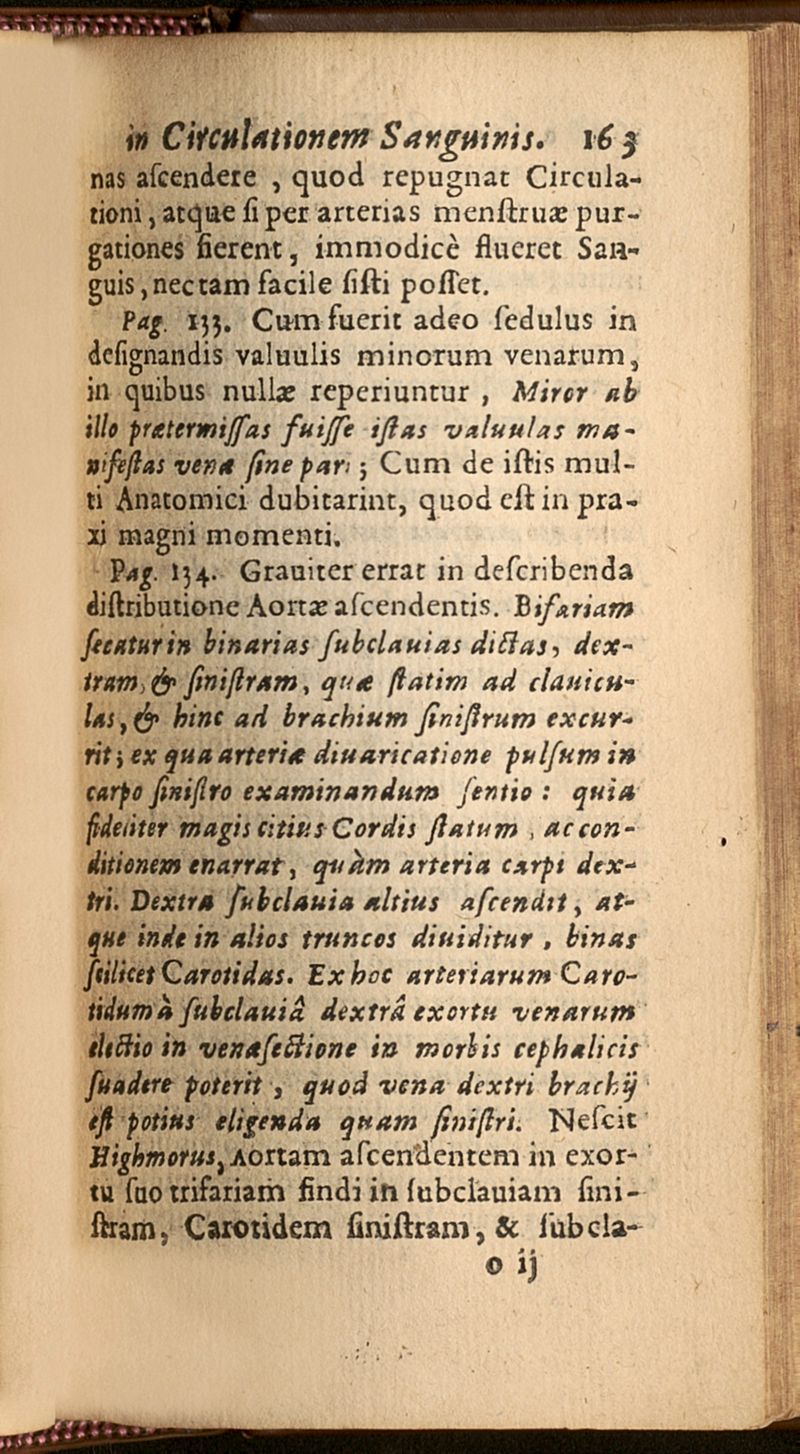 in Circulationem Sanguinis. 163
nas ascendere , quod repugnat Circula-
tioni, atque si per arterias menstruæ pur-
gationes fierent, immodicè flueret San-
guis, nec tam facile sisti posset.
Pag. 133. Cum fuerit adeo sedulus in
designandis valuulis minorum venarum,
in quibus nullæ reperiuntur , Miror ab
illo prætermissas fuisse istas valuulas ma-
nifestas venæ sine pari ; Cum de istis mul-
ti Anatomici dubitarint, quod est in pra-
xi magni momenti.
Pag. 134. Grauiter errat in describenda
distributione Aortæ ascendentis. Bifariam
secatur in binarias subclauias dictas, dex-
tram, & sinistram, quæ statim ad clauicu-
las, & hinc ad brachium sinistrum excur-
rit; ex qua arteriæ diuaricatione pulsum in
carpo sinistro examinandum sentio : quia
fideliter magis citius Cordis statum , ac con-
ditionem enarrat, quàm arteria carpi dex-
tri. Dextra subclauia altius ascendit, at-
que inde in alios truncos diuiditur , binas
scilicet Carotidas. Ex hoc arteriarum Caro-
tidum à subclauiâ dextrâ exortu venarum
electio in venæsectione in morbis cephalicis
suadere poterit , quod vena dextri brachij
est potius eligenda quam sinistri. Nescit
Highmorus, Aortam ascendentem in exor-
tu suo trifariam findi in subclauiam sini-
stram, Carotidem sinistram, & subcla-
o ij